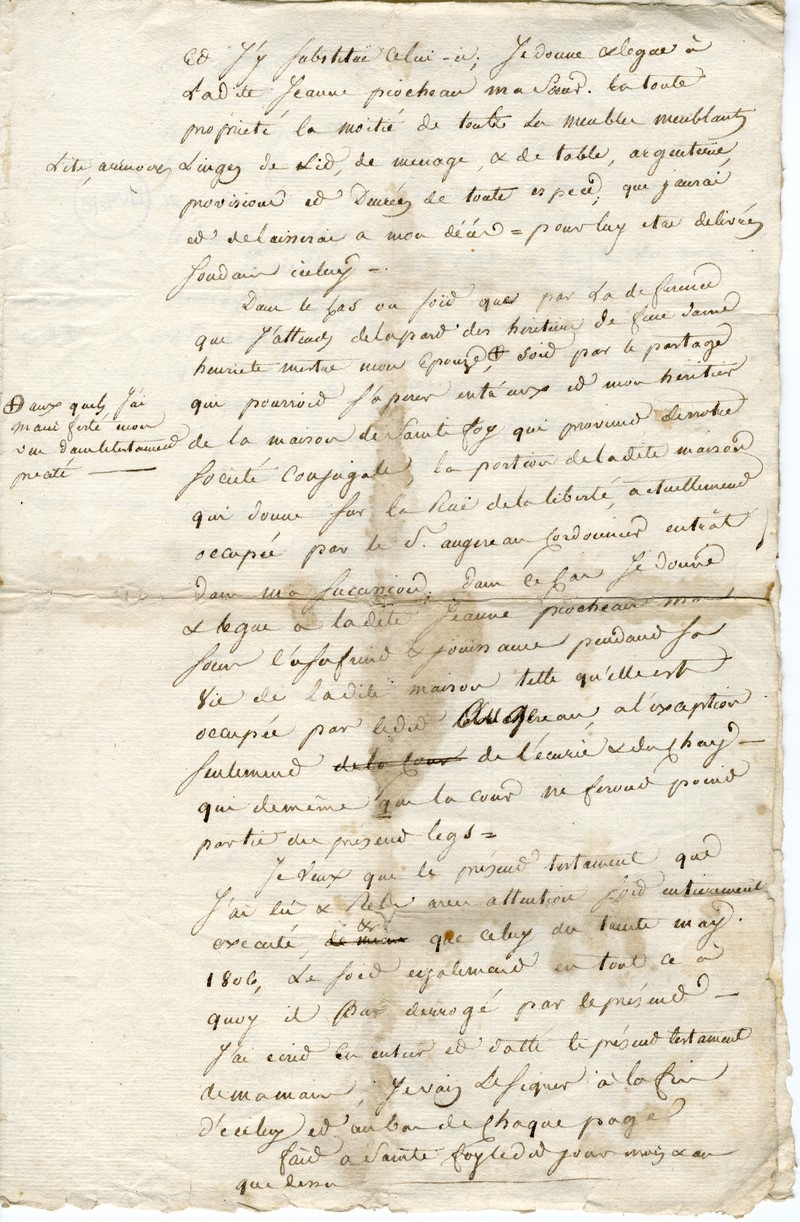 et j'y substitue celui-ci; Je donne & legue à
Ladite Jeanne piocheau ma Sœur. En toute
propriété la moitié de touts Les meubles meublants
Lits, armoires Linges de Lit, de menage, & de table, argenterie,
provisions et Denrées de toute espece, que j'aurai
et delaisserai a mon décès = pour luy etre delivrés
soudain iceluy =.
Dans le Cas ou soit que par La deference
que J'attends de la part des heritiers de feue dame
henriete mertre mon Epouze, ⊕ soit par le partage
qui pourroit s'operer entr'eux et mon heritier
⊕ aux quels J'ai
manifesté mon
vœu dans le testament
precité —
de la maison de Sainte foy qui provient de notre
société Conjugale, la portion de ladite maison
qui donne sur la Rue de la liberté, actuellement
occupée par le S.r augereau Cordonnier entrât
dans ma succession; dans ce cas Je donne
& legue a ladite Jeanne piocheau ma
sœur l'usufruit & jouissance pendant sa
Vie de ladite maison telle qu'elle est
occupée par ledit Augereau, a l'exception
seulement de la Cour de l'écurie & du Chay —
qui de même que la cour ne feront point
partie du présent legs =
Je Veux que le présent testament que
J'ai lû & Relu avec attention soit entierement
executé, de meme & que celuy du trente may.
1806, Le soit egalement en tout ce à
quoy il pas derrogé par le présent —
J'ai ecrit En entier et datté le présent testament
de ma main; Je vais Le Signer à la fin
d'iceluy et au bas de Chaque page
fait a Sainte foy ledit jour mois & an
que dessus